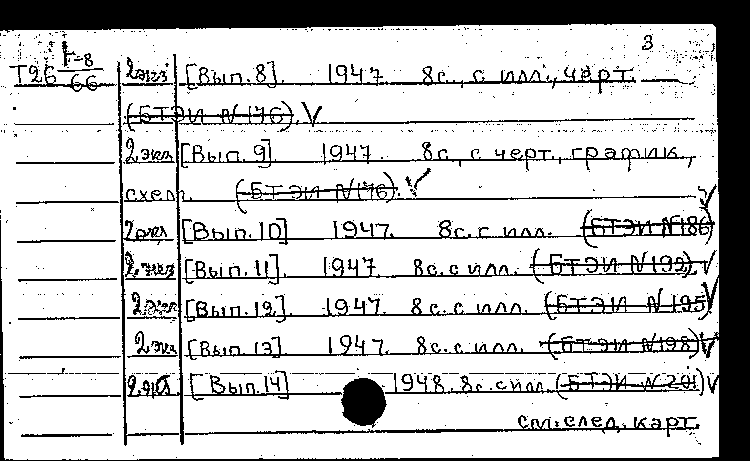 3
Т26 Г-8/66 2экз [Вып. 8]. 1947 8с., с илл., черт.
(БТЭИ N 176). V
2экз [Вып. 9] 1947. 8с., с черт., график.,
схем. (БТЭИ N 176). V
2экз [Вып. 10] 1947. 8с. с илл. (БТЭИ N 186) V
2экз [Вып. 11]. 1947 8с. с илл. (БТЭИ N 192). V
2экз [Вып. 12]. 1947. 8с. с илл. (БТЭИ N 195) V
2экз [Вып. 13]. 1947. 8с. с илл. (БТЭИ N 198) V
2экз [Вып. 14] 1948. 8с. с илл. (БТЭИ N 201) V
см. след. карт.